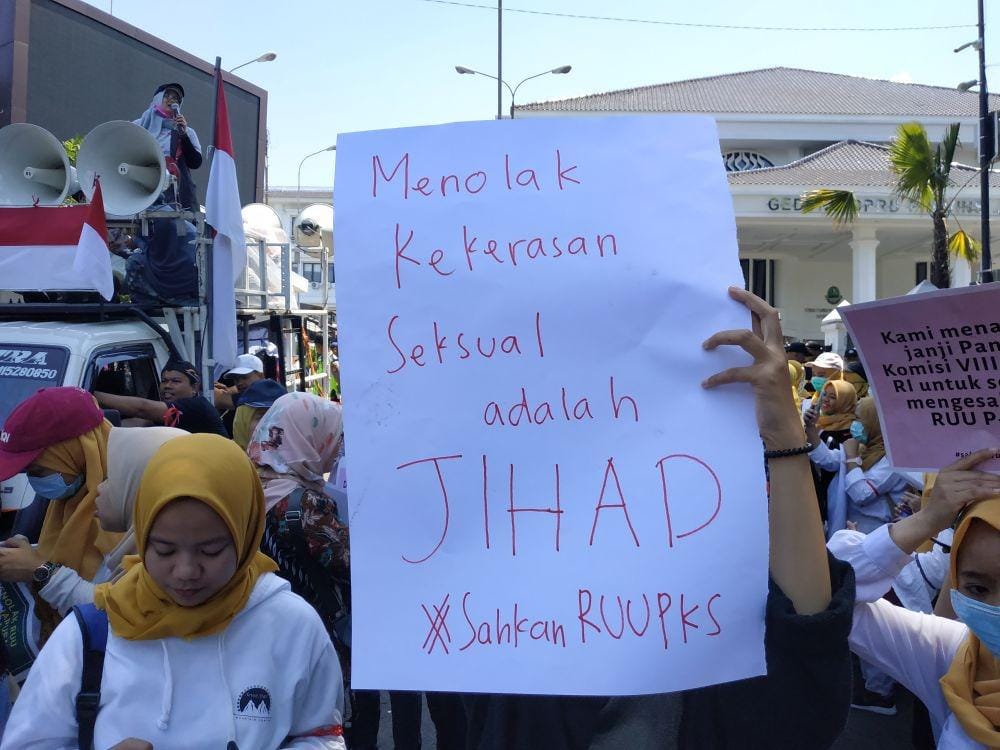 Menolak
Kekerasan
Seksual
adalah
JIHAD
#SahkanRUUPKS
GED
DPRD
Kami mena
janji Pan
Komisi VIII
RI untuk s
mengesa
RUU P
15280850